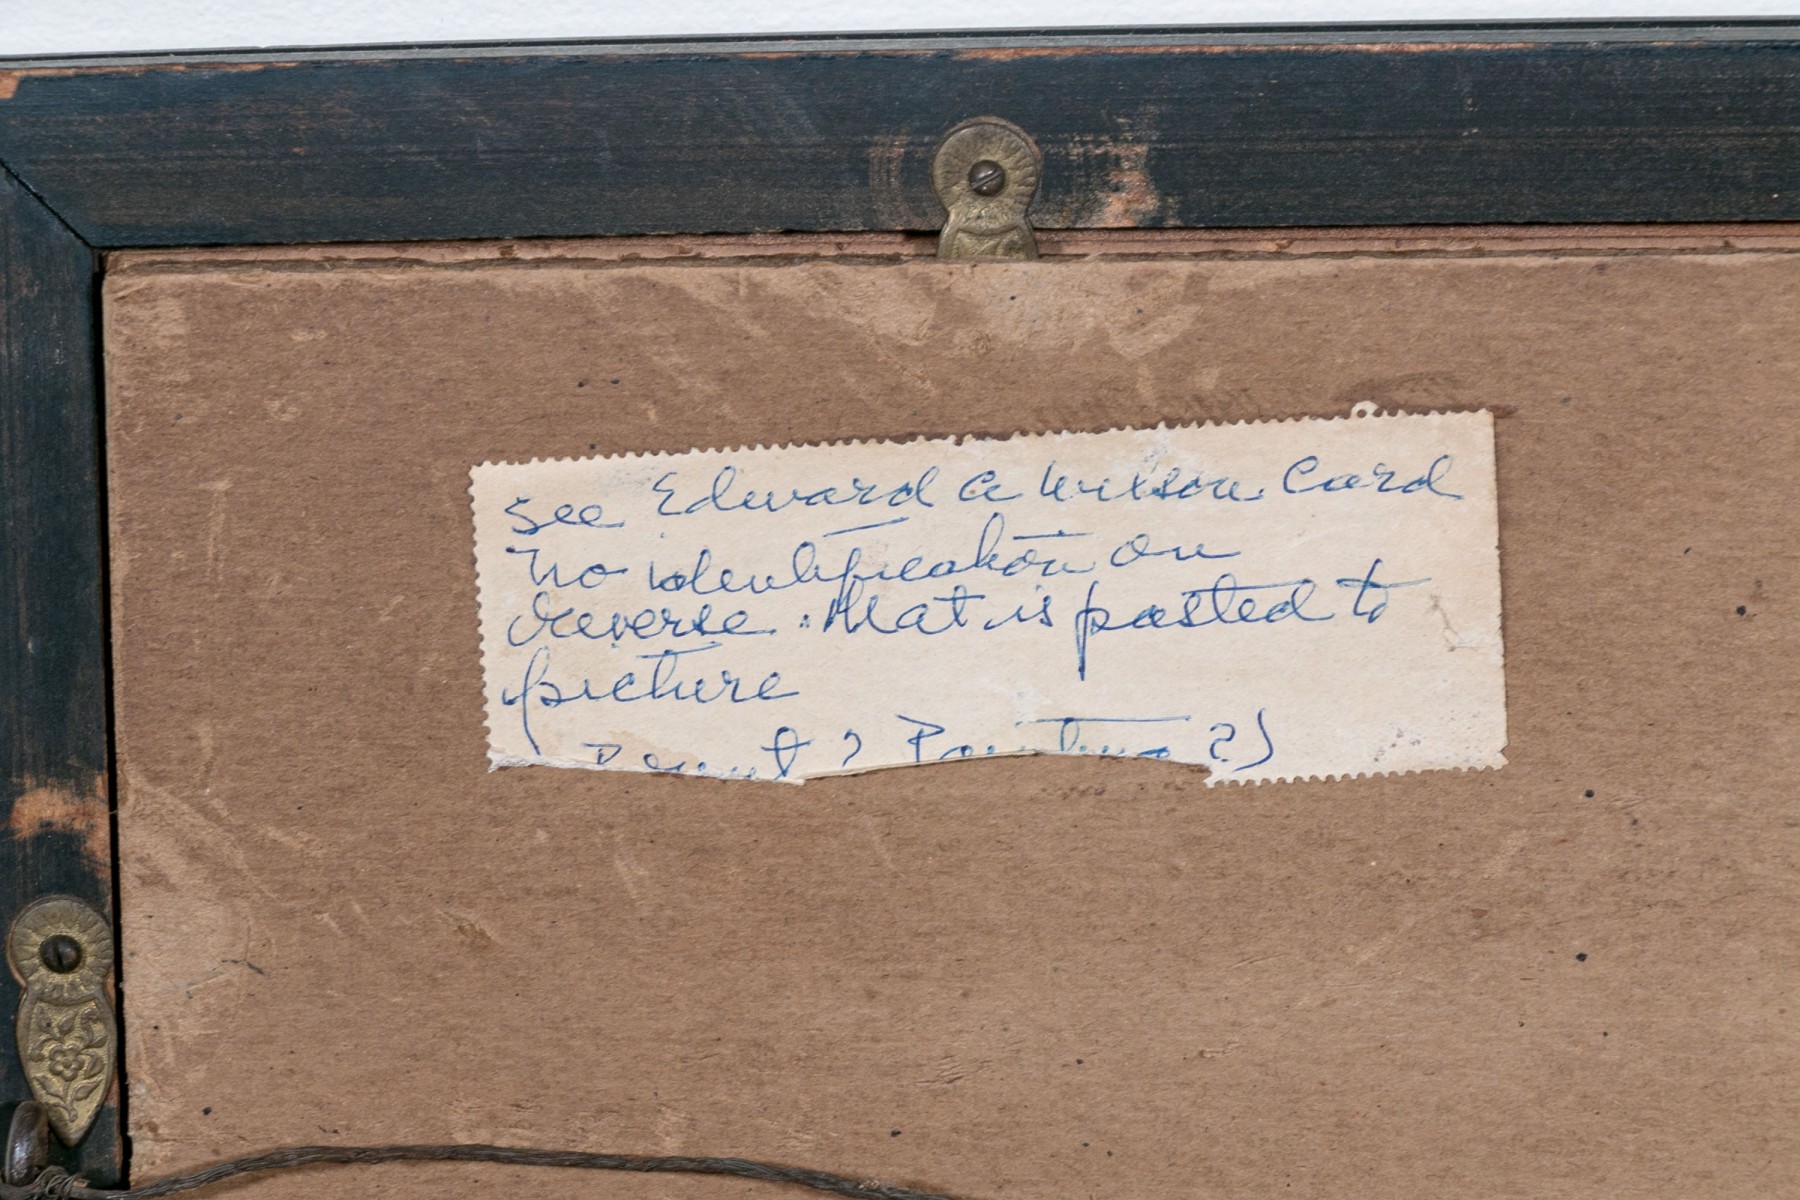 See Edward A Wilson Card
No identification on
reverse. Mat is pasted to
picture
Print ? Painting ?)